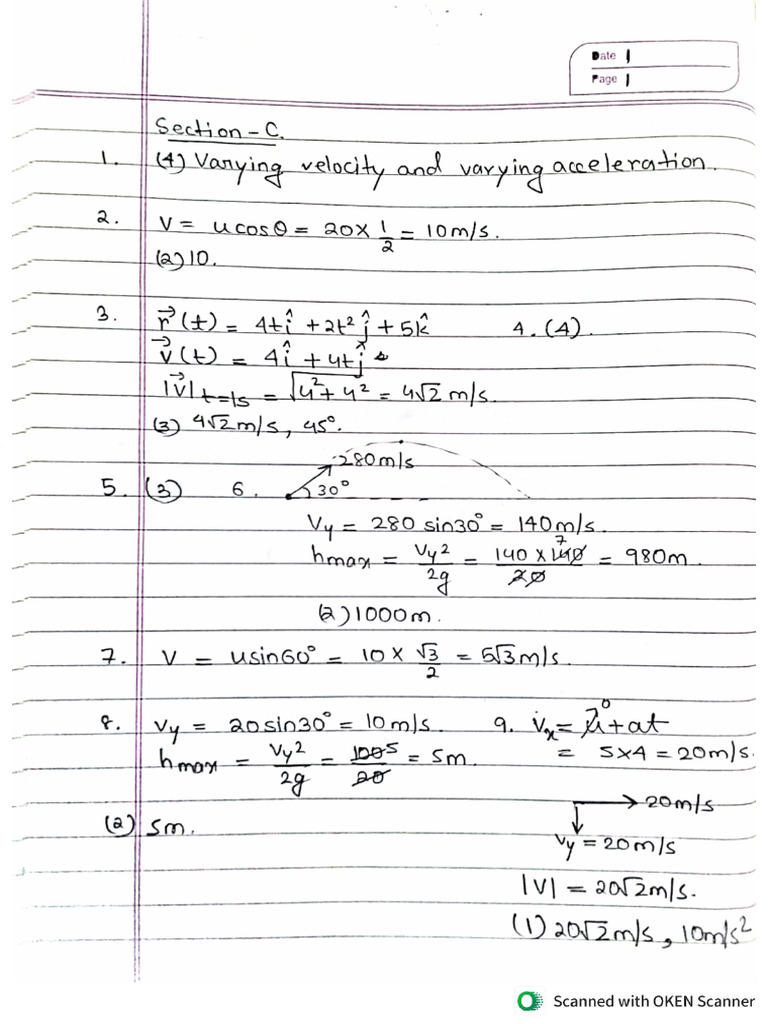 Date 1
Page 1
Section - C.
1. (4) Varying velocity and varying acceleration.
2. V = u cosθ = 20 × 1/2 = 10 m/s.
(2) 10.
3. r⃗(t) = 4t î + 2t² ĵ + 5k̂
v⃗(t) = 4î + 4t ĵ
|v⃗|t=1s = √4² + 4² = 4√2 m/s.
(3) 4√2 m/s, 45°.
4. (4).
5. (3)
6. 280 m/s
30°
Vy = 280 sin30° = 140 m/s.
hmax = Vy²/2g = 140 × 140/20 = 980m.
7
(2) 1000m.
7. V = usin60° = 10 × √3/2 = 5√3 m/s.
8. Vy = 20 sin30° = 10 m/s.
hmax = Vy²/2g = 100/20 = 5m.
5
(2) 5m.
9. Vx = u + at
0
= 5×4 = 20 m/s.
20 m/s
Vy = 20 m/s
|V| = 20√2 m/s.
(1) 20√2 m/s, 10 m/s²
Scanned with OKEN Scanner